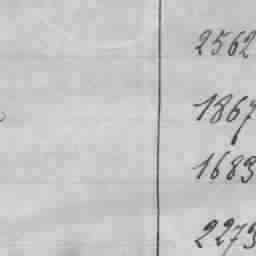 2562
1867
1683
2273